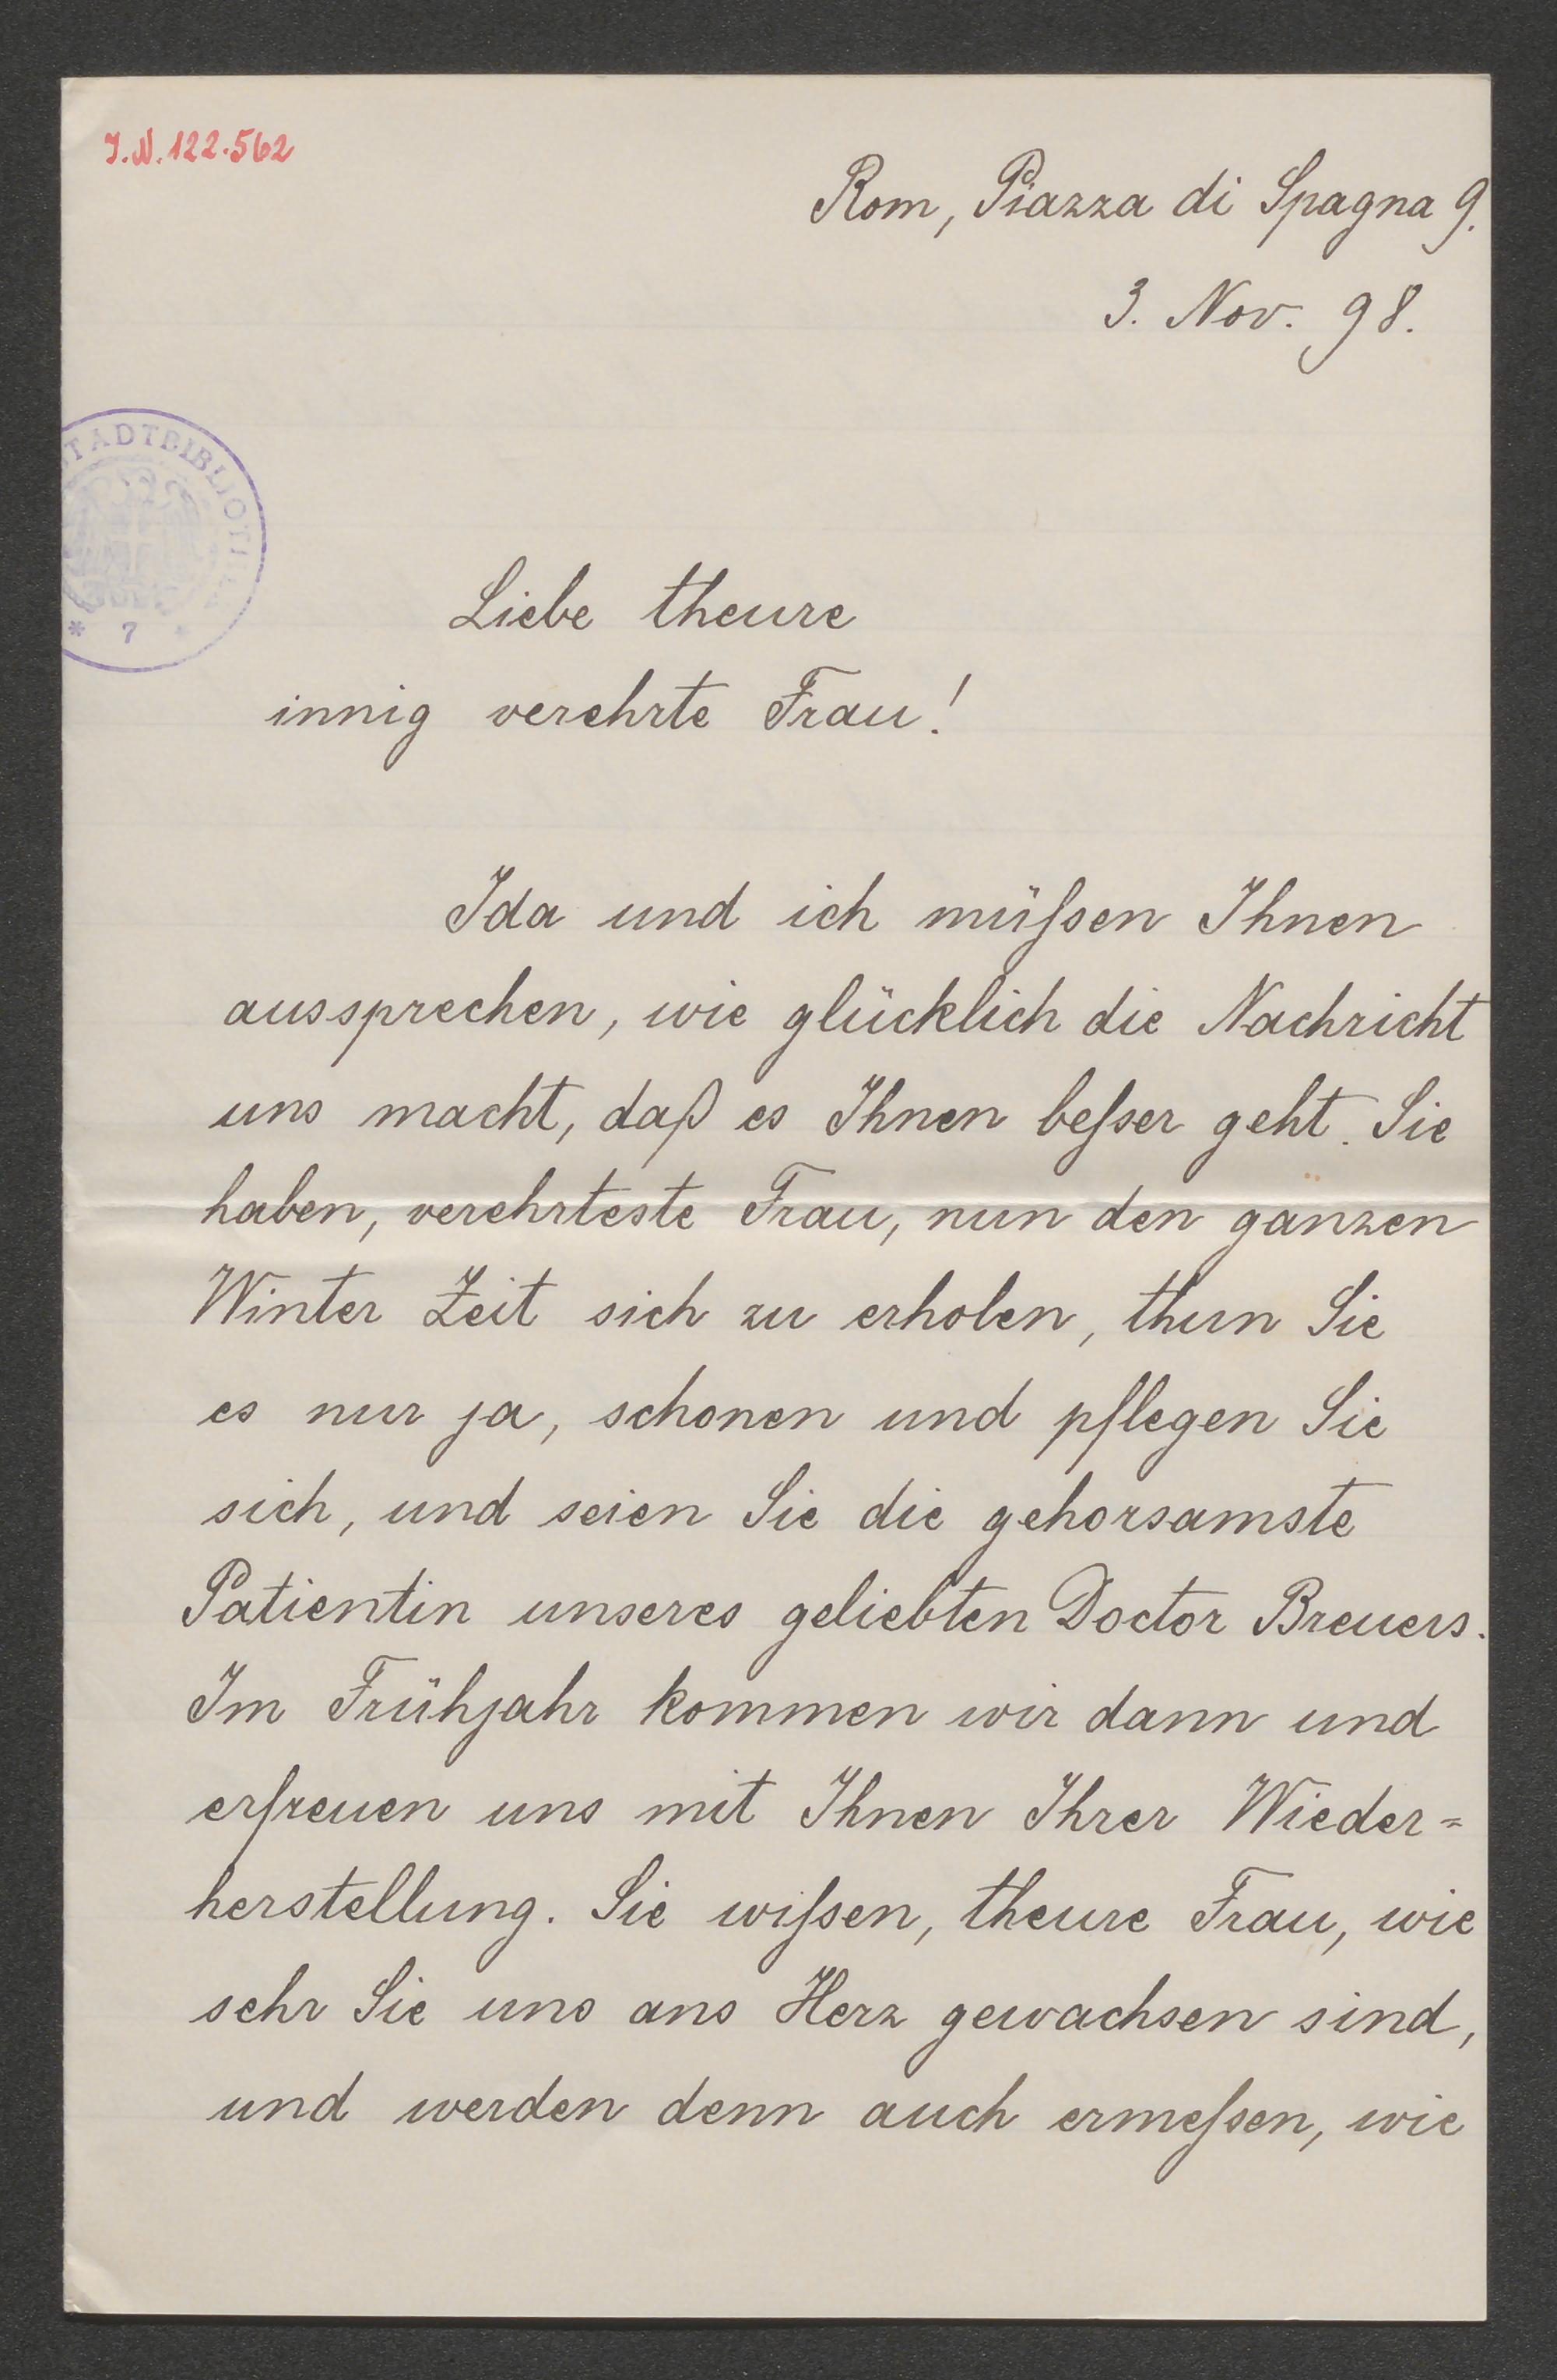 I.N. 122.562
Rom, Piazza di Spagna 9.
3. Nov. 98.
STADTBIBLIOT
* 7 *
Liebe theure
innig verehrte Frau!
Ida und ich müſsen Ihnen
aussprechen, wie glücklich die Nachricht
uns macht, daß es Ihnen beſser geht. Sie
haben, verehrteste Frau, nun den ganzen
Winter Zeit sich zu erholen, thun Sie
es nur ja, schonen und pflegen Sie
sich, und seien Sie die gehorsamste
Patientin unseres geliebten Doctor Breuers.
Im Frühjahr kommen wir dann und
erfreuen uns mit Ihnen Ihrer Wieder=
herstellung. Sie wiſsen, theure Frau, wie
sehr Sie uns ans Herz gewachsen sind,
und werden denn auch ermeſsen, wie